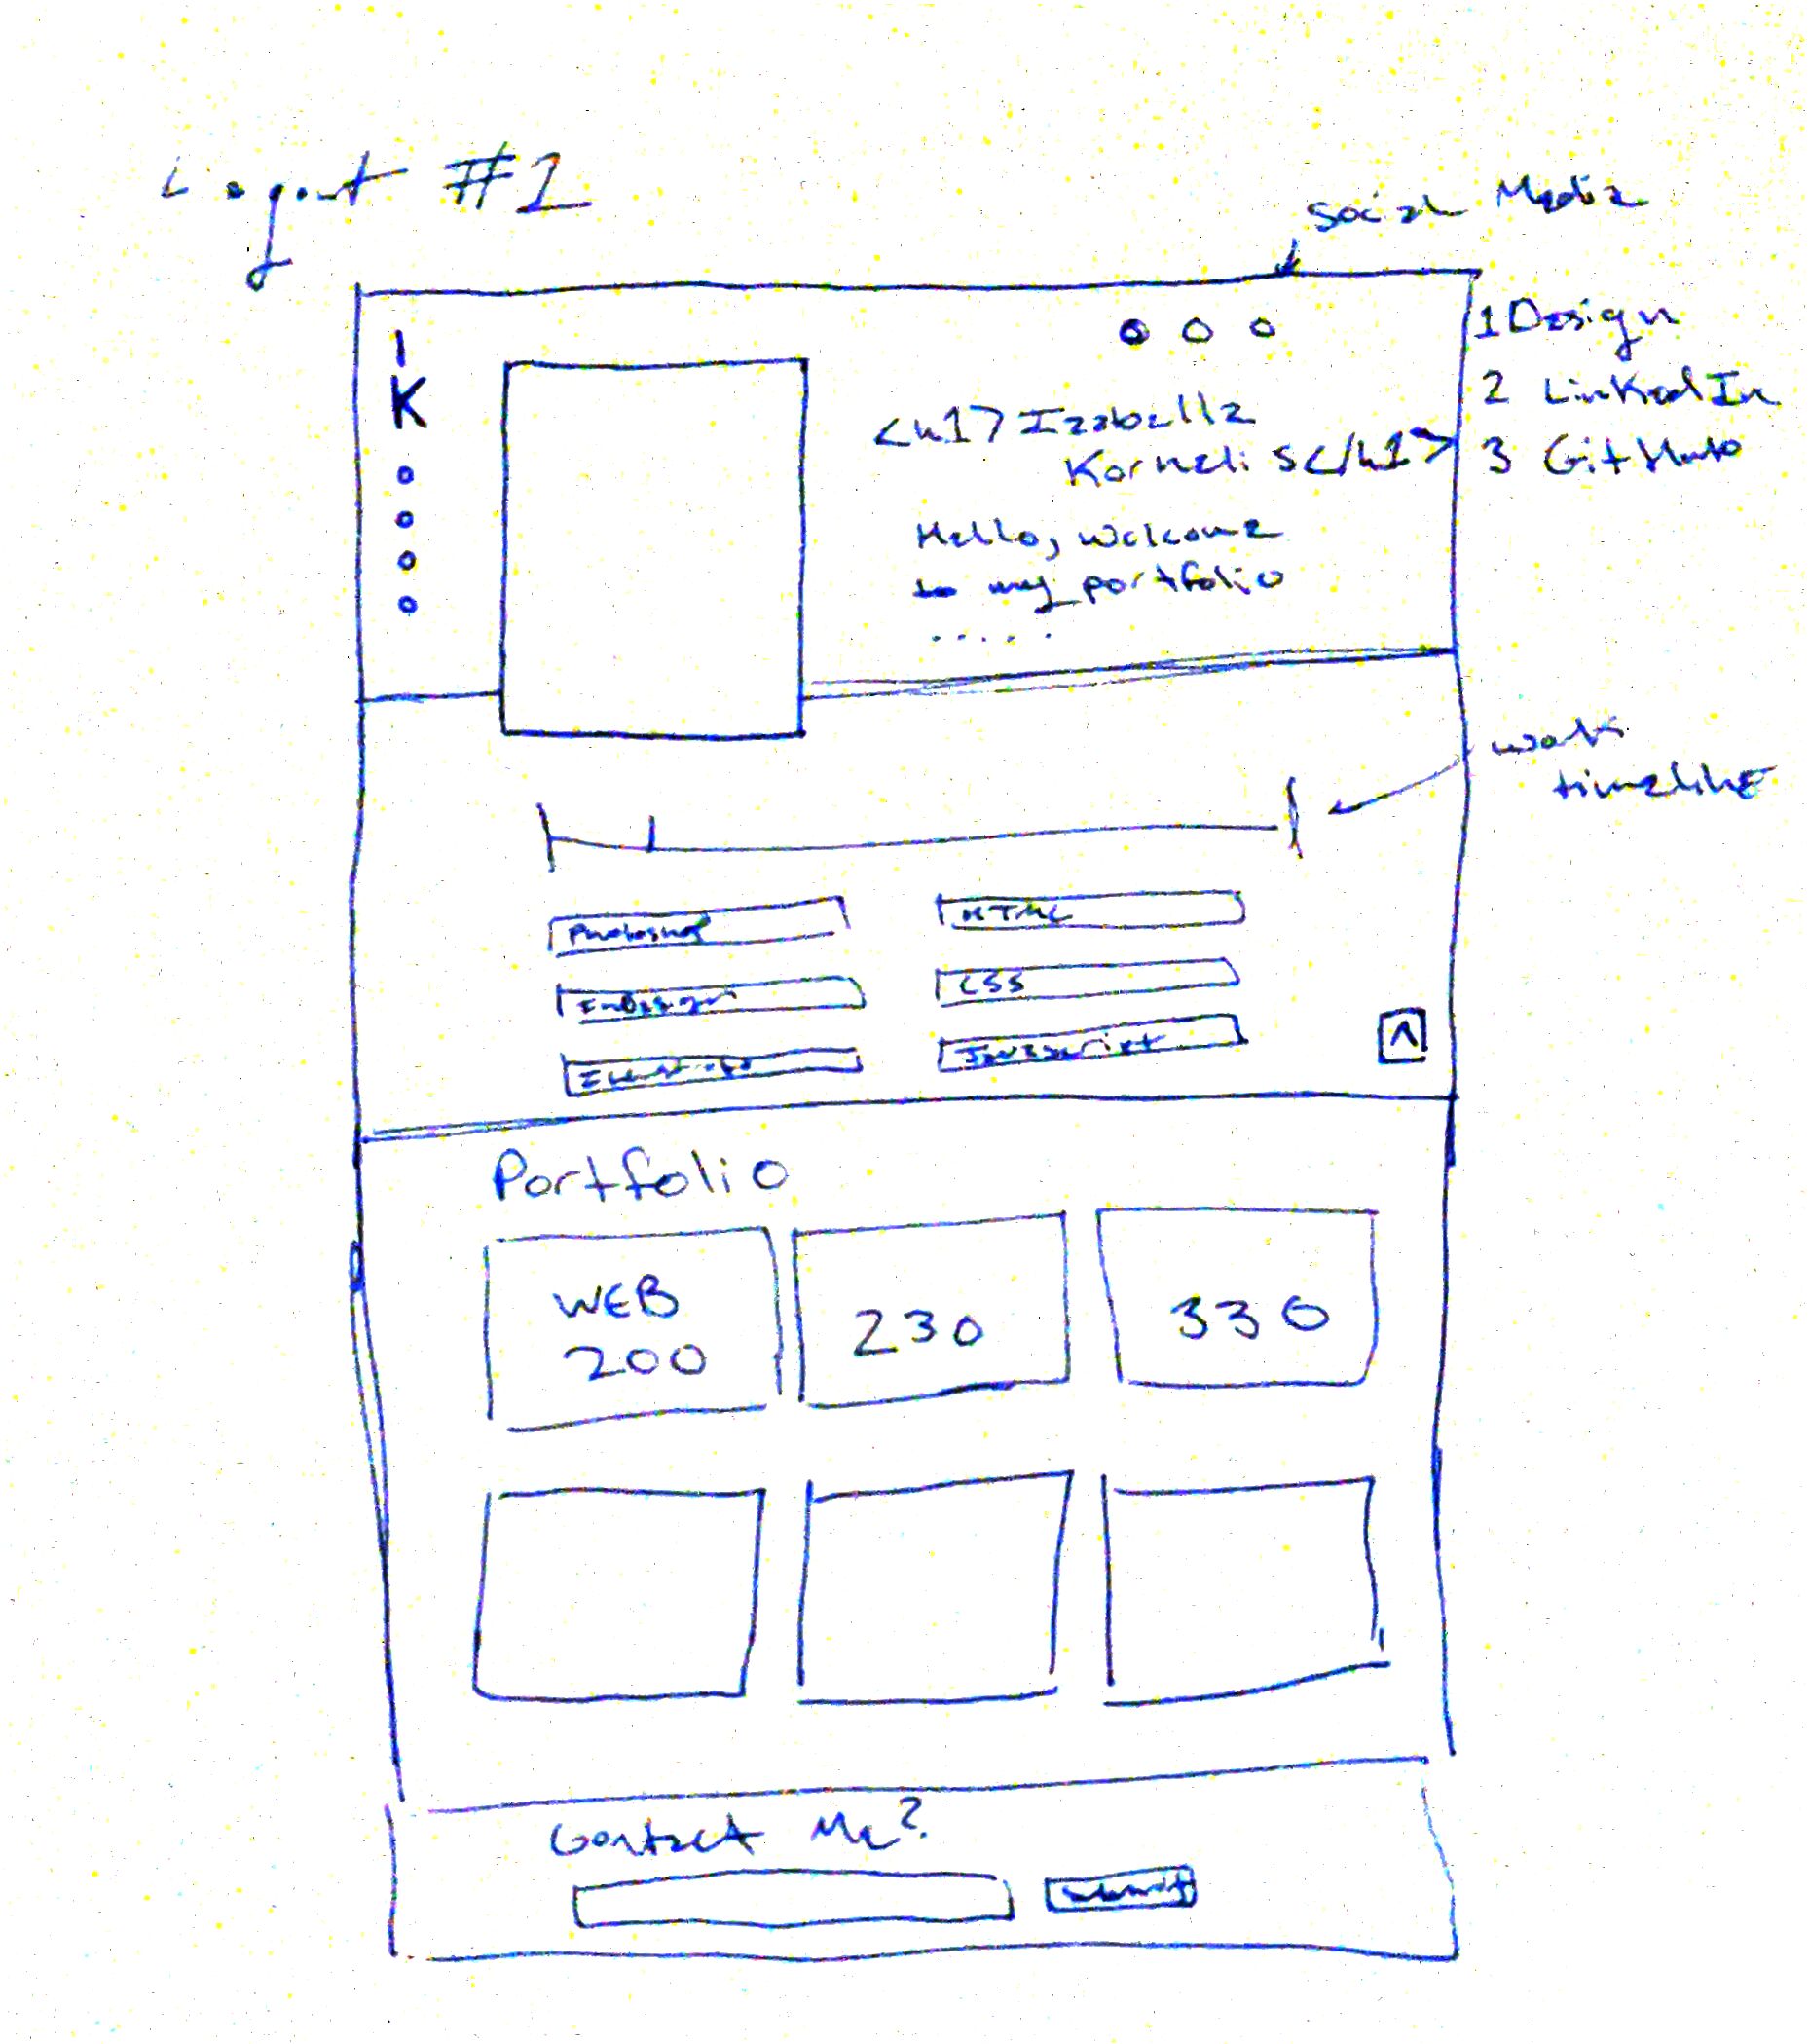 Layout #2
Social Media
1 Design
2 LinkedIn
3 GitHub
I
K
<h1> Izabella
Kornelis</h1>
Hello, welcome
to my portfolio
.....
work
timeline
Photoshop
HTML
InDesign
CSS
Illustrator
JavaScript
^
Portfolio
WEB
200
230
330
Contact Me?
submit